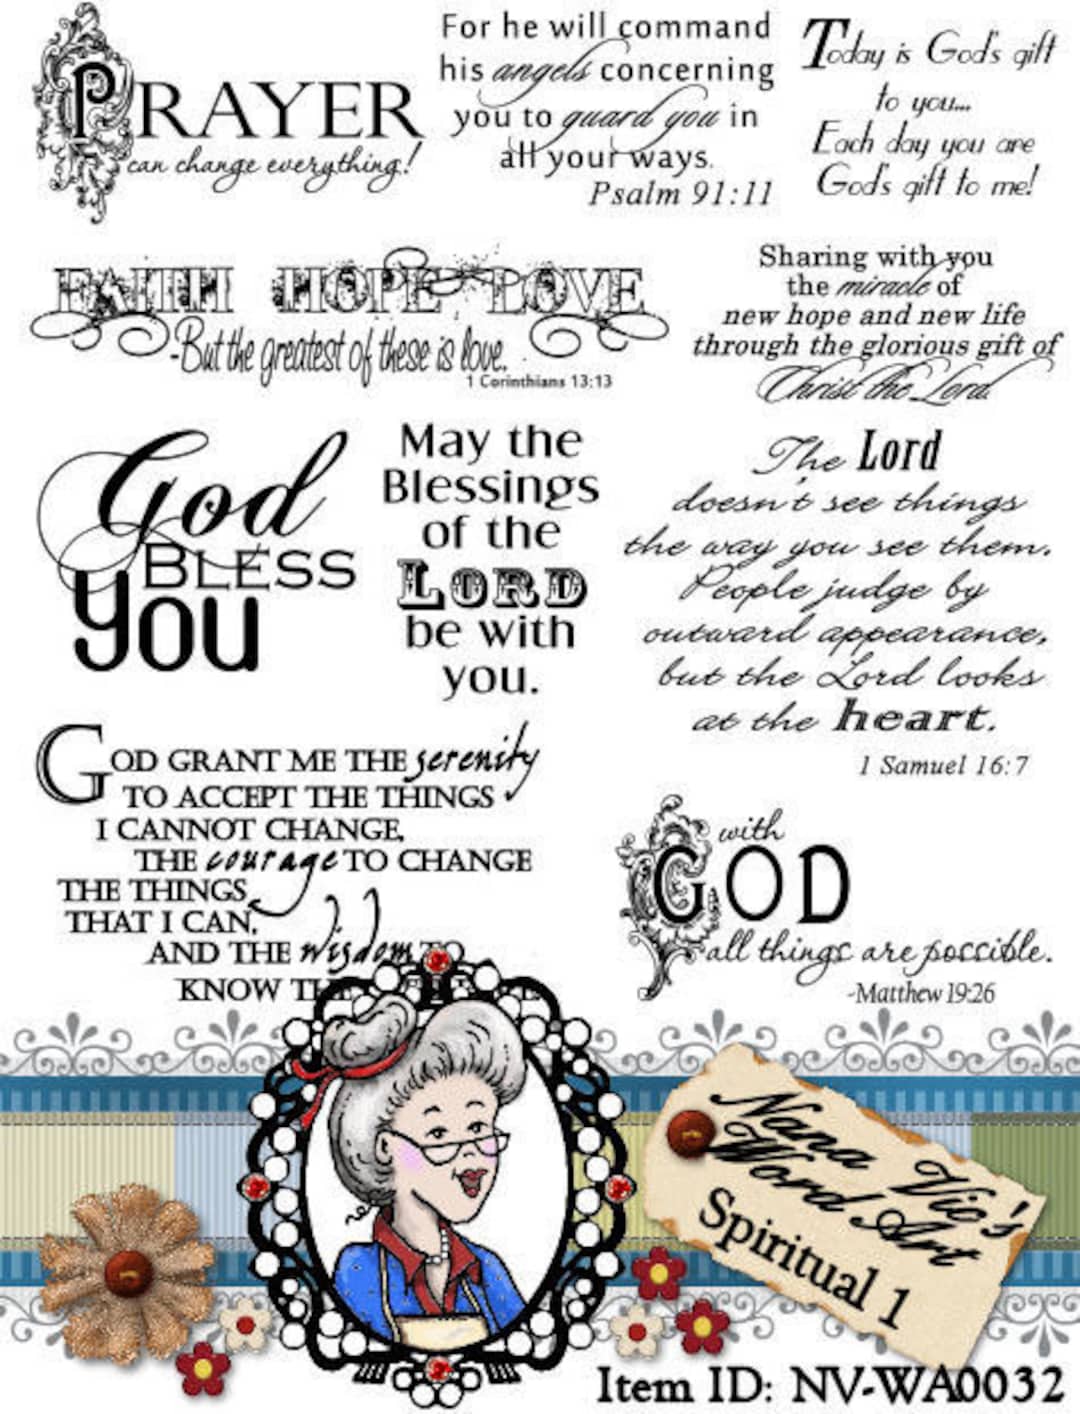 PRAYER
can change everything!
For he will command
his angels concerning
you to guard you in
all your ways.
Psalm 91:11
Today is God's gift
to you...
Each day you are
God's gift to me!
FAITH HOPE LOVE
-But the greatest of these is love.
1 Corinthians 13:13
Sharing with you
the miracle of
new hope and new life
through the glorious gift of
Christ the Lord.
God
BLESS
you
May the
Blessings
of the
LORD
be with
you.
The Lord
doesn't see things
the way you see them.
People judge by
outward appearance,
but the Lord looks
at the heart.
1 Samuel 16:7
GOD GRANT ME THE serenity
TO ACCEPT THE THINGS
I CANNOT CHANGE,
THE courage TO CHANGE
THE THINGS
THAT I CAN,
AND THE wisdom TO
KNOW
with
GOD
all things are possible.
-Matthew 19:26
Nana Vic's
Word Art
Spiritual 1
Item ID: NV-WA0032